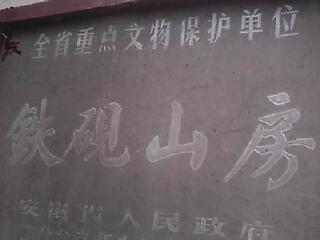 全省重点文物保护单位
铁砚山房
安徽省人民政府